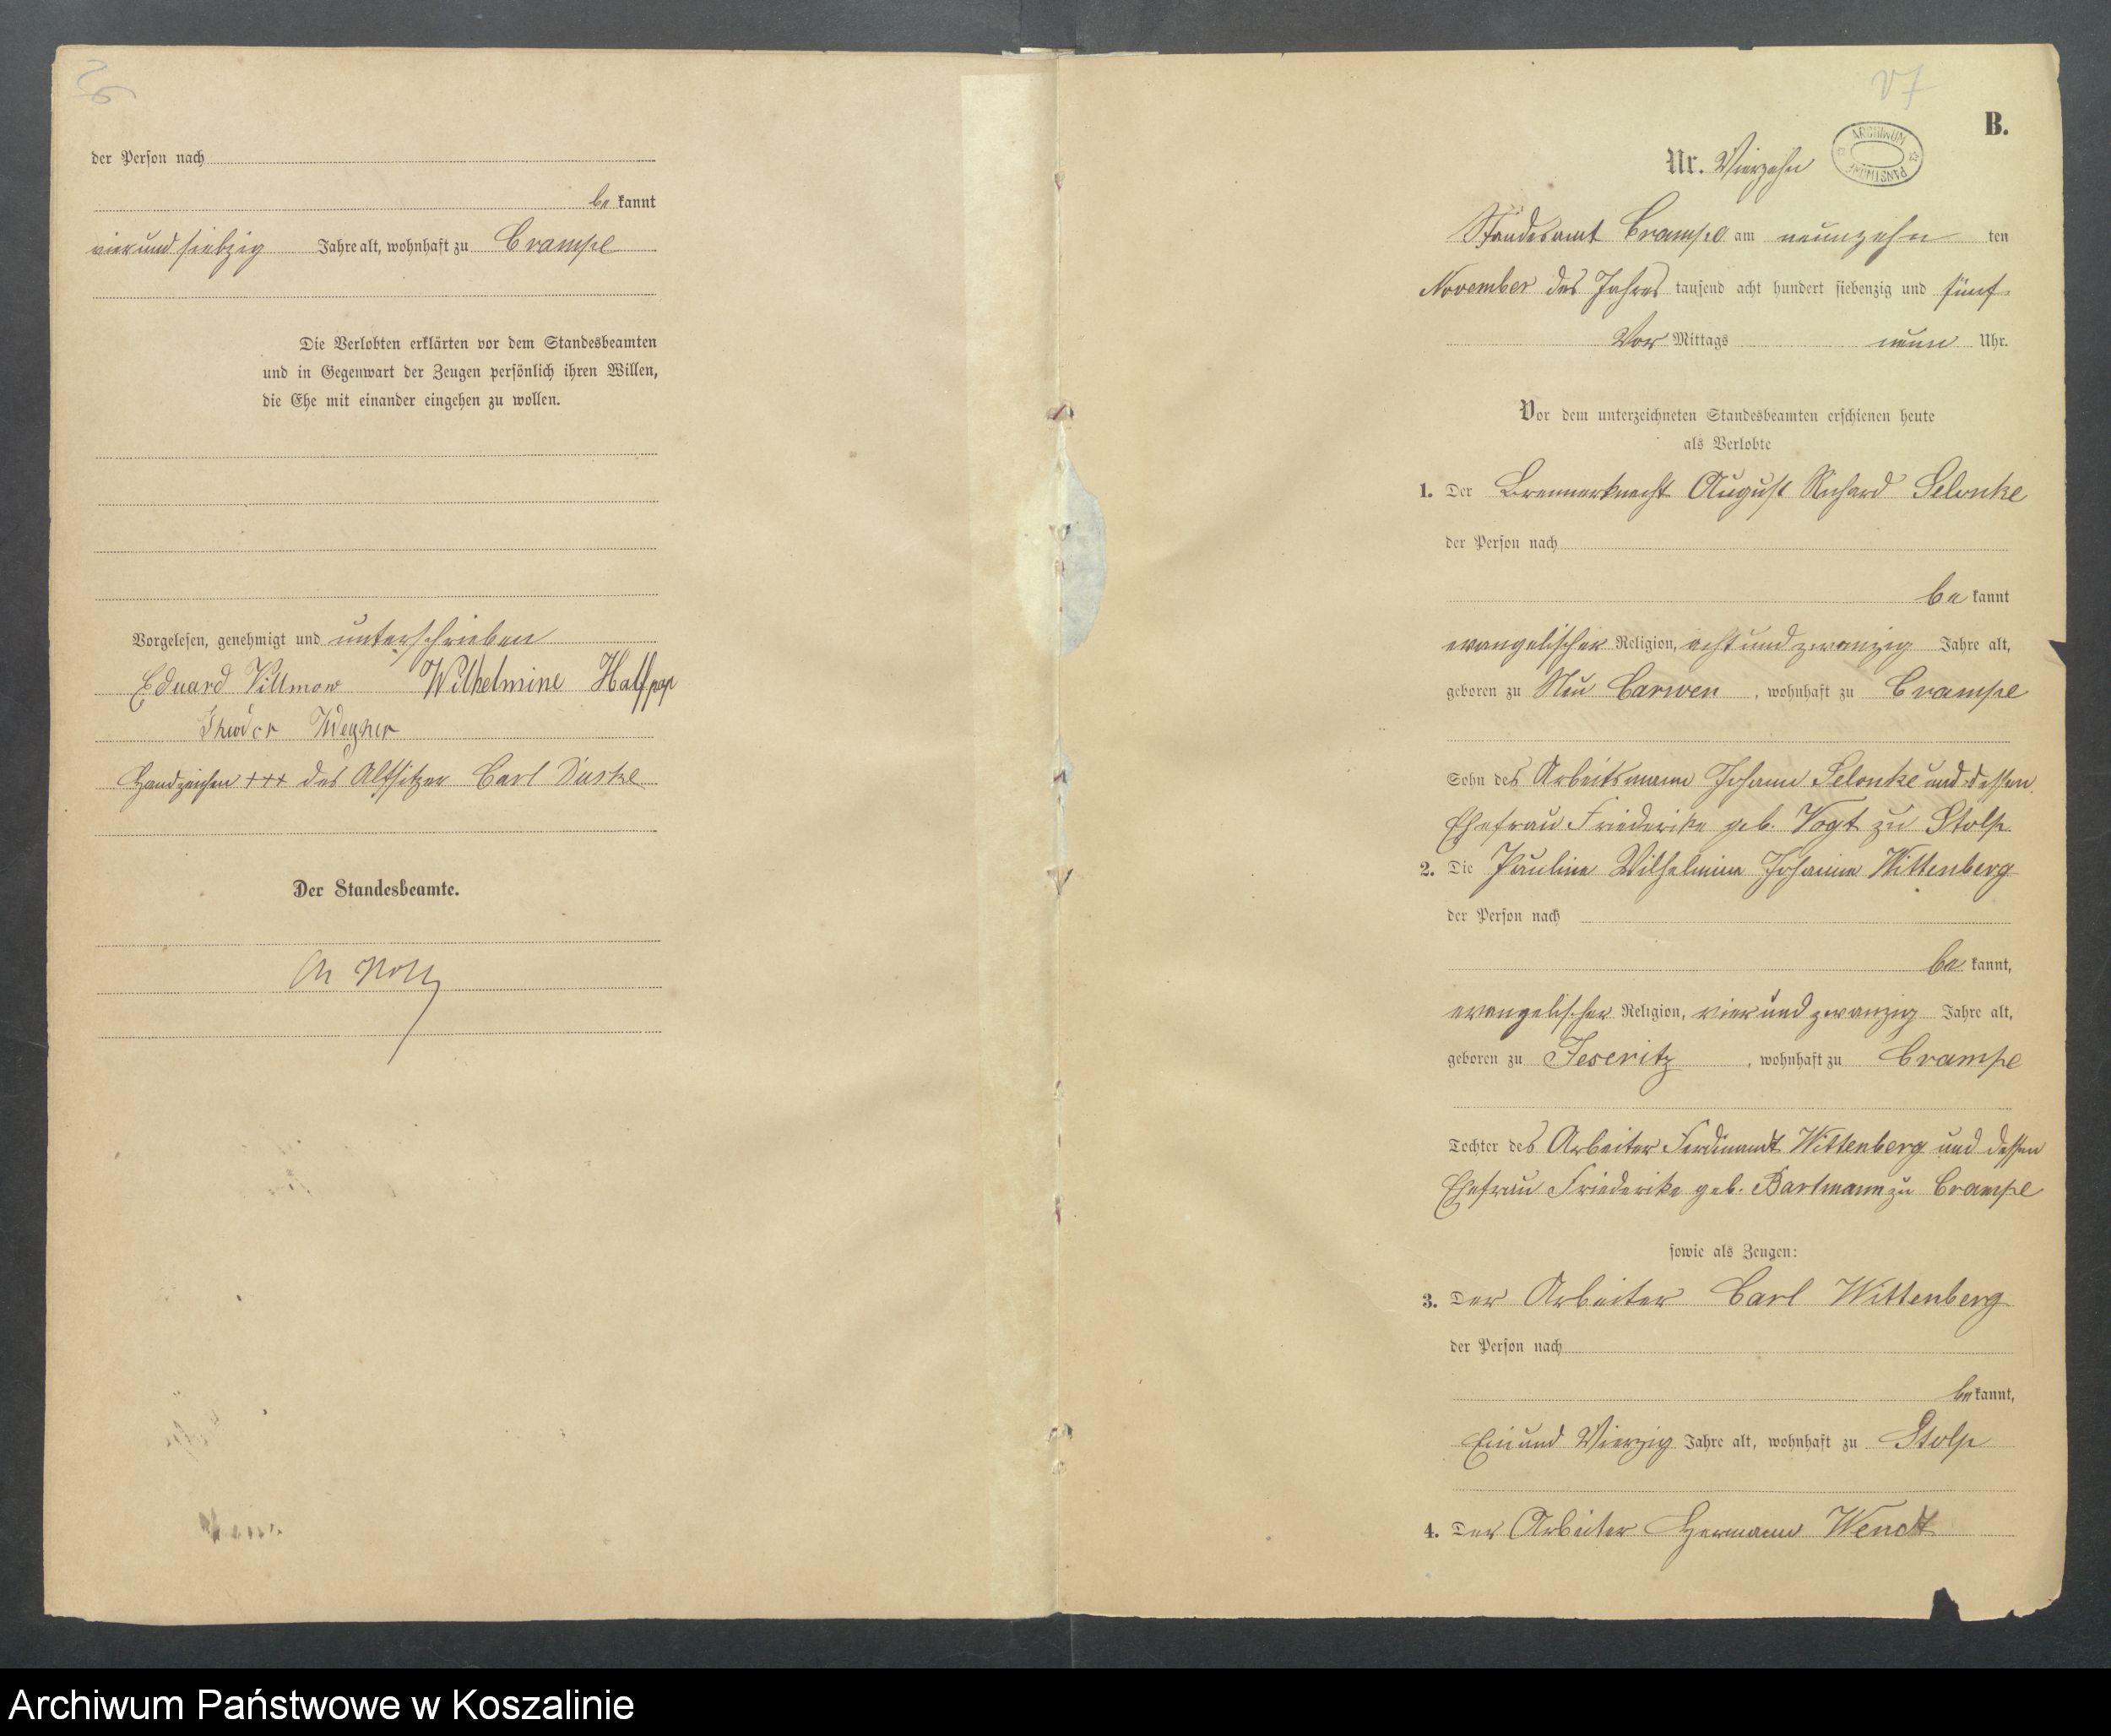 der Person nach
be kannt
vierundsiebzig Jahre alt, wohnhaft zu Crampe
Die Verlobten erklärten vor dem Standesbeamten
und in Gegenwart der Zeugen persönlich ihren Willen,
die Ehe mit einander eingehen zu wollen.
Vorgelesen, genehmigt und unterschrieben
Eduard Villmow Wilhelmine Halfpap
Theodor Wegner
Handzeichen +++ des Altsitzer Carl
Der Standesbeamte.
B.
Nr. Vierzehn
ARCHIWUM PAŃSTWOWE
Standesamt Crampe am neunzehn ten
November des Jahres tausend acht hundert siebenzig und fünf
Vor Mittags neun Uhr.
Vor dem unterzeichneten Standesbeamten erschienen heute
als Verlobte
1. Der Brennerknecht August Richard Selonke
der Person nach
be kannt
evangelischer Religion, achtundzwanzig Jahre alt,
geboren zu Neu Carwen, wohnhaft zu Crampe
Sohn des Arbeitsmann Johann Selonke und dessen
Ehefrau Friederike geb. Vogt zu Stolp
2. Die Pauline Wilhelmine Johanne Wittenberg
der Person nach
be kannt,
evangelischer Religion, vierundzwanzig Jahre alt,
geboren zu Jeseritz, wohnhaft zu Crampe
Tochter des Arbeiter Ferdinandt Wittenberg und dessen
Ehefrau Friederike geb. Bartmann zu Crampe
sowie als Zeugen:
3. Der Arbeiter Carl Wittenberg
der Person nach
be kannt,
Ein und Vierzig Jahre alt, wohnhaft zu Stolp
4. Der Arbeiter Hermann Wendt
Archiwum Państwowe w Koszalinie